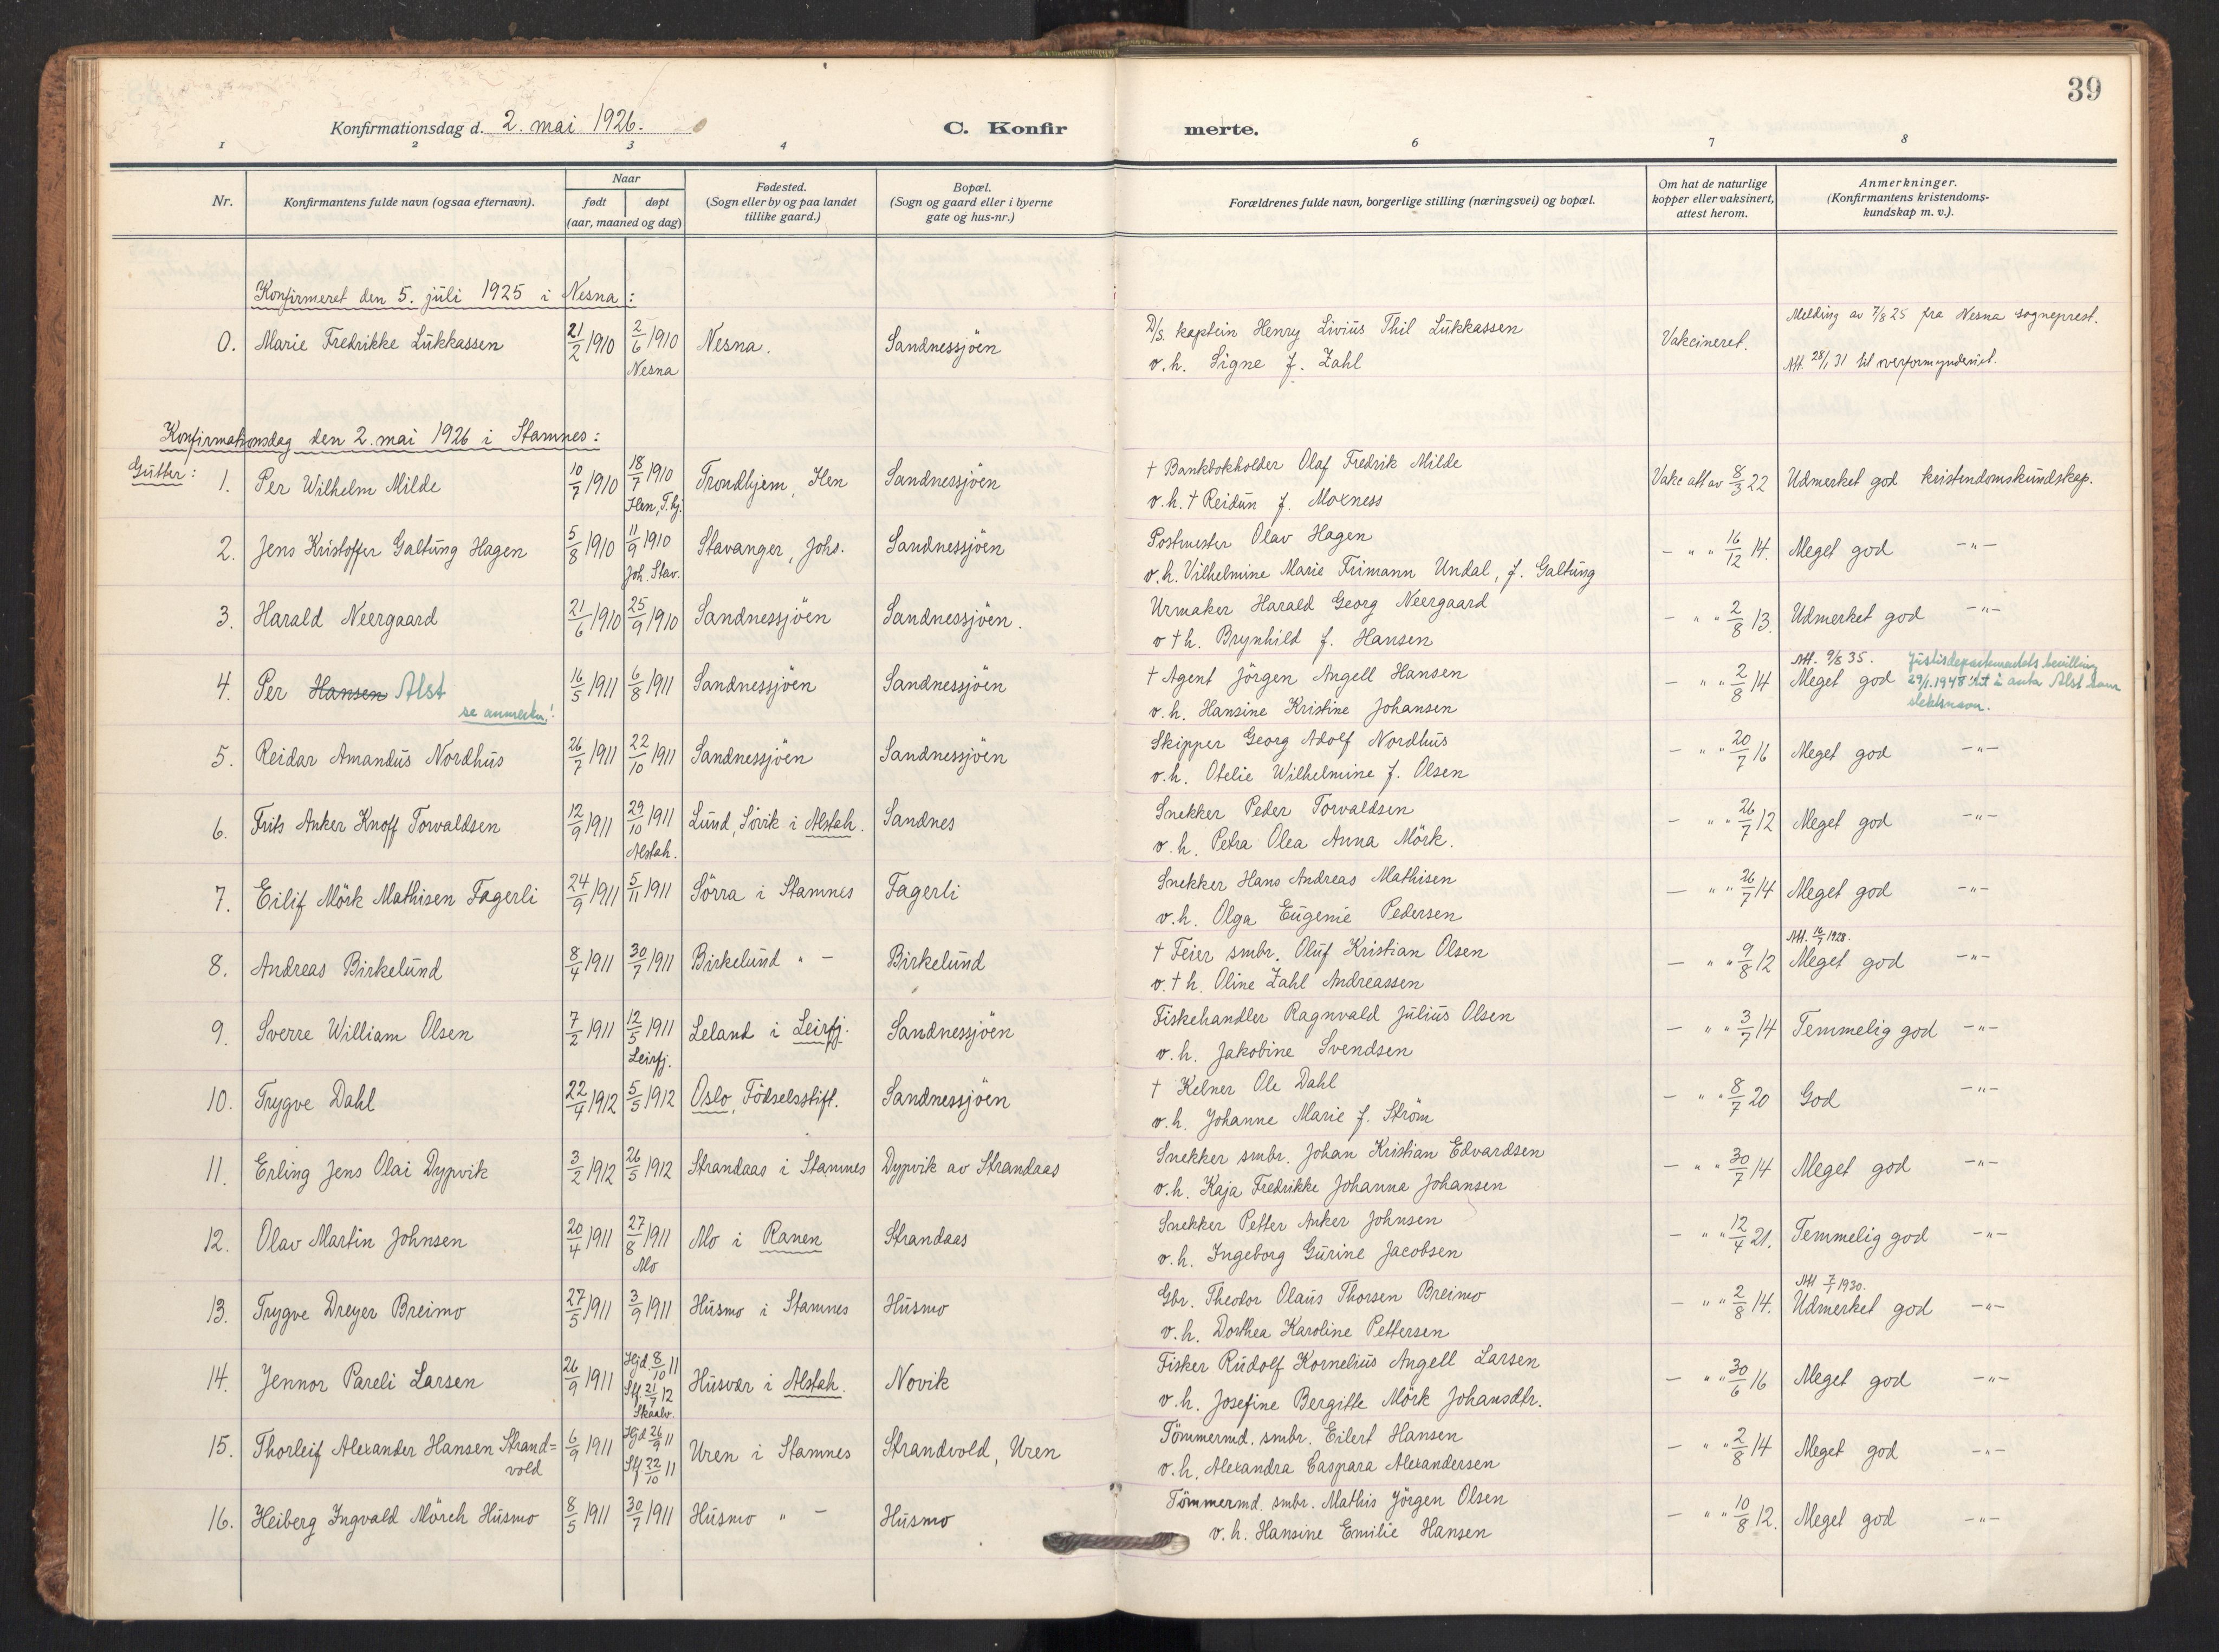 39
Konfirmationsdag d. 2. mai 1926. C. Konfir merte.
1 2 3 4 6 7 8
Nr. Konfirmantens fulde navn (ogsaa efternavn). Naar født døpt (aar, maaned og dag) Fødested. (Sogn eller by og paa landet tillike gaard.) Bopæl. (Sogn og gaard eller i byerne gate og hus-nr.) Forældrenes fulde navn, borgerlige stilling (næringsvei) og bopæl. Om hat de naturlige kopper eller vaksinert, attest herom. Anmerkninger. (Konfirmantens kristendoms-kundskap m. v.).
Konfirmeret den 5. júli 1925 i Nesna:
0. Marie Fredrikke Lúkkassen 21/2 1910 2/6 1910 Nesna Nesna. Sandnessjöen D/S. kaptein Henry Liviús Thil Lúkkassen Vakcineret. Melding av 7/8 25 fra Nesna sogneprest.
v. h. Signe f. Zahl Att. 28/1 31 til overformynderiet.
Konfirmationsdag den 2. mai 1926 i Stamnes:
Gútter: 1. Per Wilhelm Milde 10/7 1910 18/7 1910 Ilen, T.hj. Trondhjem, Ilen Sandnessjöen † Bankbokholder Olaf Fredrik Milde Vakc att av 8/3 22 Udmerket god kristendomskúndskap.
v. h. † Reidún f. Moxness
2. Jens Kristoffer Galtúng Hagen 5/8 1910 11/9 1910 Joh. Stav. Stavanger, Johs. Sandnessjöen Postmester Olav Hagen - " " 16/12 14. Meget god -"-
v. h. Vilhelmine Marie Frimann Undal, f. Galtúng
3. Harald Neergaard 21/6 1910 25/9 1910 Sandnessjöen Sandnessjöen. Urmaker Harald Georg Neergaard - " " 2/8 13. Udmerket god -"-
v † h. Brynhild f. Hansen
4. Per Hansen Alst 16/5 1911 6/8 1911 Sandnessjöen Sandnessjöen † Agent Jörgen Angell Hansen - " " 2/8 14 Att. 9/8 35. Meget god Jústisdepartementets bevilling 29/1.1948 til å anta Alst som slektsnavn.
se anmerkn.!
v. h. Hansine Kristine Johansen
5. Reidar Amandús Nordhús 26/7 1911 22/10 1911 Sandnessjöen Sandnessjöen Skipper Georg Adolf Nordhús - " " 20/7 16 Meget god -"-
v. h. Otelie Wilhelmine f. Olsen
6. Frits Anker Knoff Torvaldsen 12/9 1911 29/10 1911 Alstah. Lúnd, Sörvik i Alstah. Sandnes Snekker Peder Torvaldsen - " " 26/7 12 Meget god -"-
v. h. Petra Olea Anna Mörk.
7. Eilif Mörk Mathisen Fagerli 24/9 1911 5/11 1911 Sörra i Stamnes Fagerli Snekker Hans Andreas Mathisen - " " 26/7 14 Meget god -"-
v. h. Olga Eúgenie Pedersen
8. Andreas Birkelúnd 8/4 1911 30/7 1911 Birkelúnd " - Birkelúnd † Feier smbr. Olúf Kristian Olsen - " " 9/8 12 Att. 16/7 1928. Meget god -"-
v. † h. Oline Zahl Andreassen
9. Sverre William Olsen 7/2 1911 12/5 1911 Leirfj. Leland i Leirfj. Sandnessjöen Fiskehandler Ragnvald Júliús Olsen - " " 3/7 14 Temmelig god -"-
v. h. Jakobine Svendsen
10. Trygve Dahl 22/4 1912 5/5 1912 Oslo, Födselsstift. Sandnessjöen † Kelner Ole Dahl - " " 8/7 20 God -"-
v. h. Johanne Marie f. Ström
11. Erling Jens Olai Dypvik 3/2 1912 26/5 1912 Strandaas i Stamnes Dypvik av Strandaas Snekker smbr. Johan Kristian Edvardsen - " " 30/7 14 Meget god -"-
v. h. Kaja Fredrikke Johanna Johansen
12. Olav Martin Johnsen 20/4 1911 27/8 1911 Mo Mo i Ranen Strandaas Snekker Petter Anker Johnsen - " " 12/4 21. Temmelig god -"-
v. h. Ingeborg Gúrine Jacobsen
13. Trygve Dreyer Breimo 27/5 1911 3/9 1911 Húsmo i Stamnes Húsmo Gbr. Theodor Olaús Thorsen Breimo - " " 2/8 14. Att 7/7 1930. Udmerket god -"-
v. h. Dorthea Karoline Pettersen
14. Jennor Pareli Larsen 26/9 1911 Hjd. 8/10 11 Stf. 21/7 12 Skaalv. Húsvær i Alstah. Novik Fisker Rúdolf Korneliús Angell Larsen - " " 30/6 16 Meget god -"-
v. h. Josefine Bergitte Mörk Johansdtr.
15. Thorleif Alexander Hansen Strand=vold 6/9 1911 Hjd 26/9 11 Stf 22/10 11 Uren i Stamnes Strandvold, Uren Tömmermd. smbr. Eilert Hansen - " " 2/8 14 Meget god -"-
v. h. Alexandra Caspara Alexandersen
16. Heiberg Ingvald Mörch Húsmo 8/5 1911 30/7 1911 Húsmo " - Húsmo Tömmermd. smbr. Mathis Jörgen Olsen - " " 10/8 12. Meget god -"-
v. h. Hansine Emilie Hansen